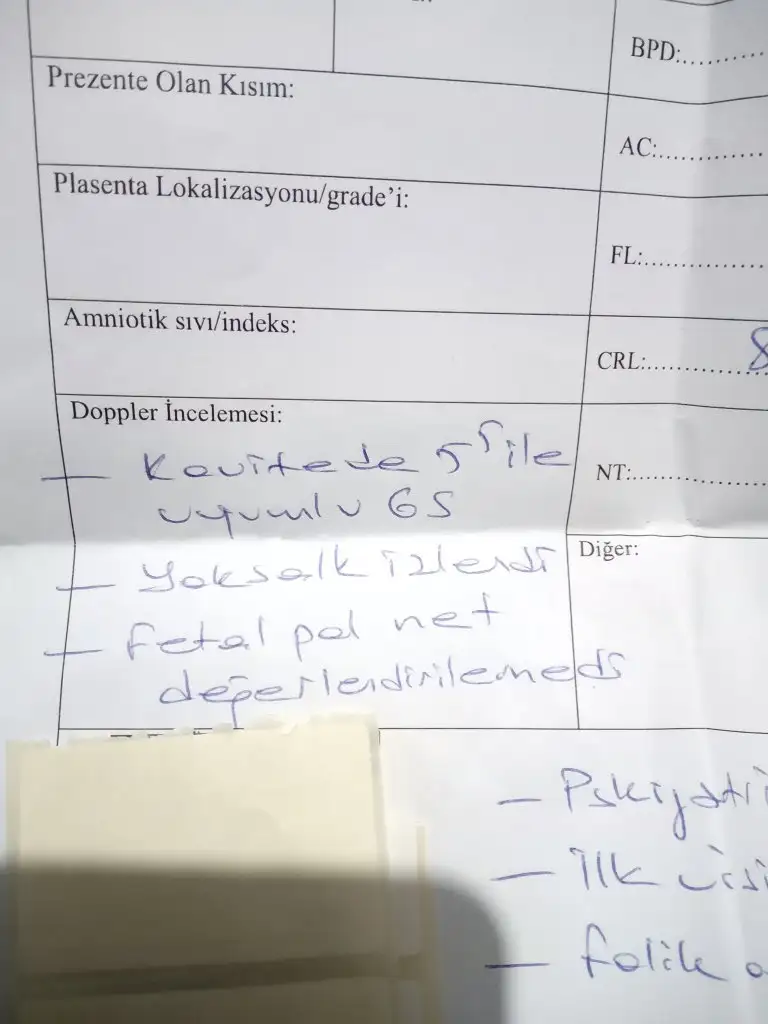 BPD:..........
Prezente Olan Kısım:
AC:..............
Plasenta Lokalizasyonu/grade'i:
FL:..............
Amniotik sıvı/indeks:
CRL:..............8
Doppler İncelemesi:
— Kavitede 5 ile
NT:..............
uyumlu GS
Diğer:
— Yoksalk izlendi
— fetal pol net
değerlendirilemedi
— Pskiyatri
— ilk
— folik